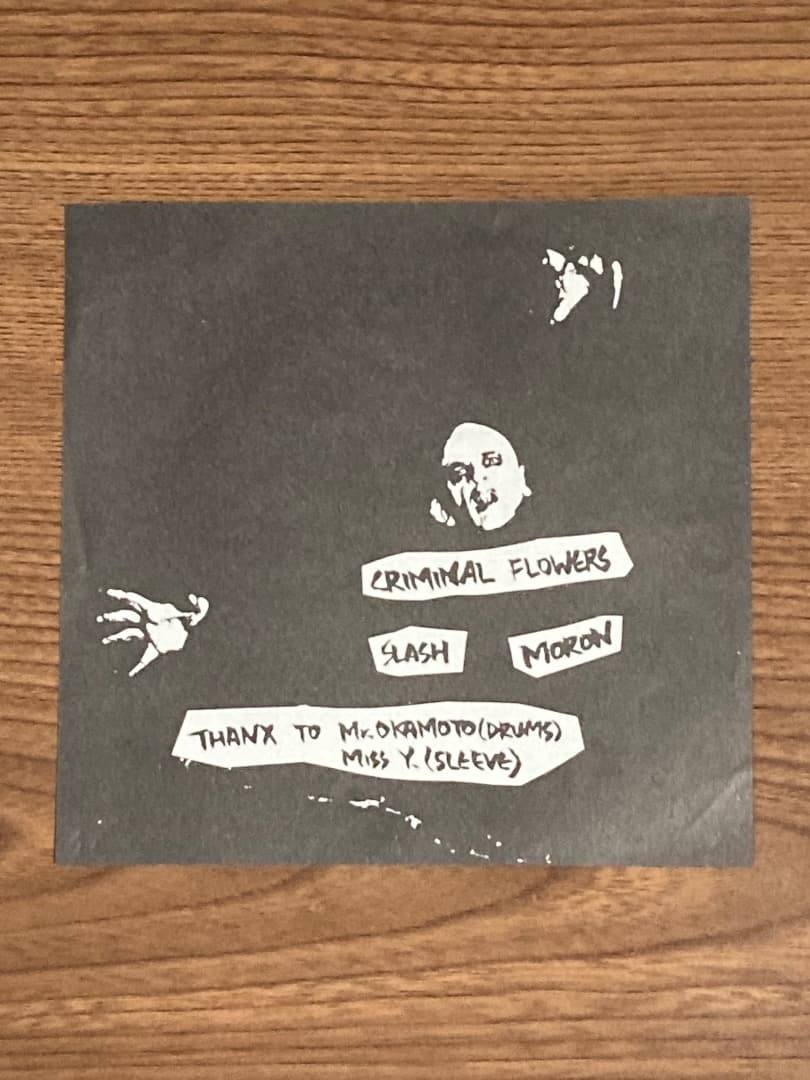 CRIMINAL FLOWERS
SLASH MORON
THANX TO Mr. OKAMOTO (DRUMS)
MISS Y. (SLEEVE)